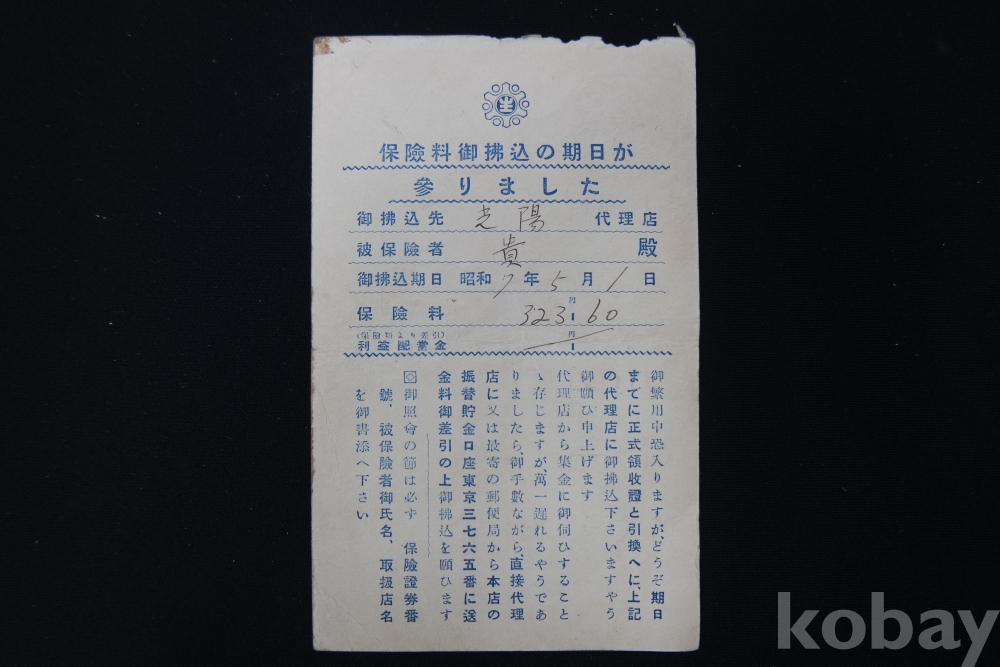 保險料御拂込の期日が
參りました
御拂込先 光陽 代理店
被保險者 貴 殿
御拂込期日 昭和 7 年 5 月 1 日
保險料 323円60
(保險料より差引)
利益配當金 円
御繁用中恐入りますが、どうぞ期日
までに正式領收證と引換へに、上記
の代理店に御拂込下さいますやう
御願ひ申上げます
代理店から集金に御伺ひすること
ゝ存じますが、萬一遲れるやうであ
りましたら、御手數ながら、直接代理
店に又は最寄の郵便局から本店の
振替貯金口座東京三七六五番に送
金料御差引の上御拂込を願ひます
御照會の節は必ず 保險證券番
號、被保險者御氏名、取扱店名
を御書添へ下さい
kobay